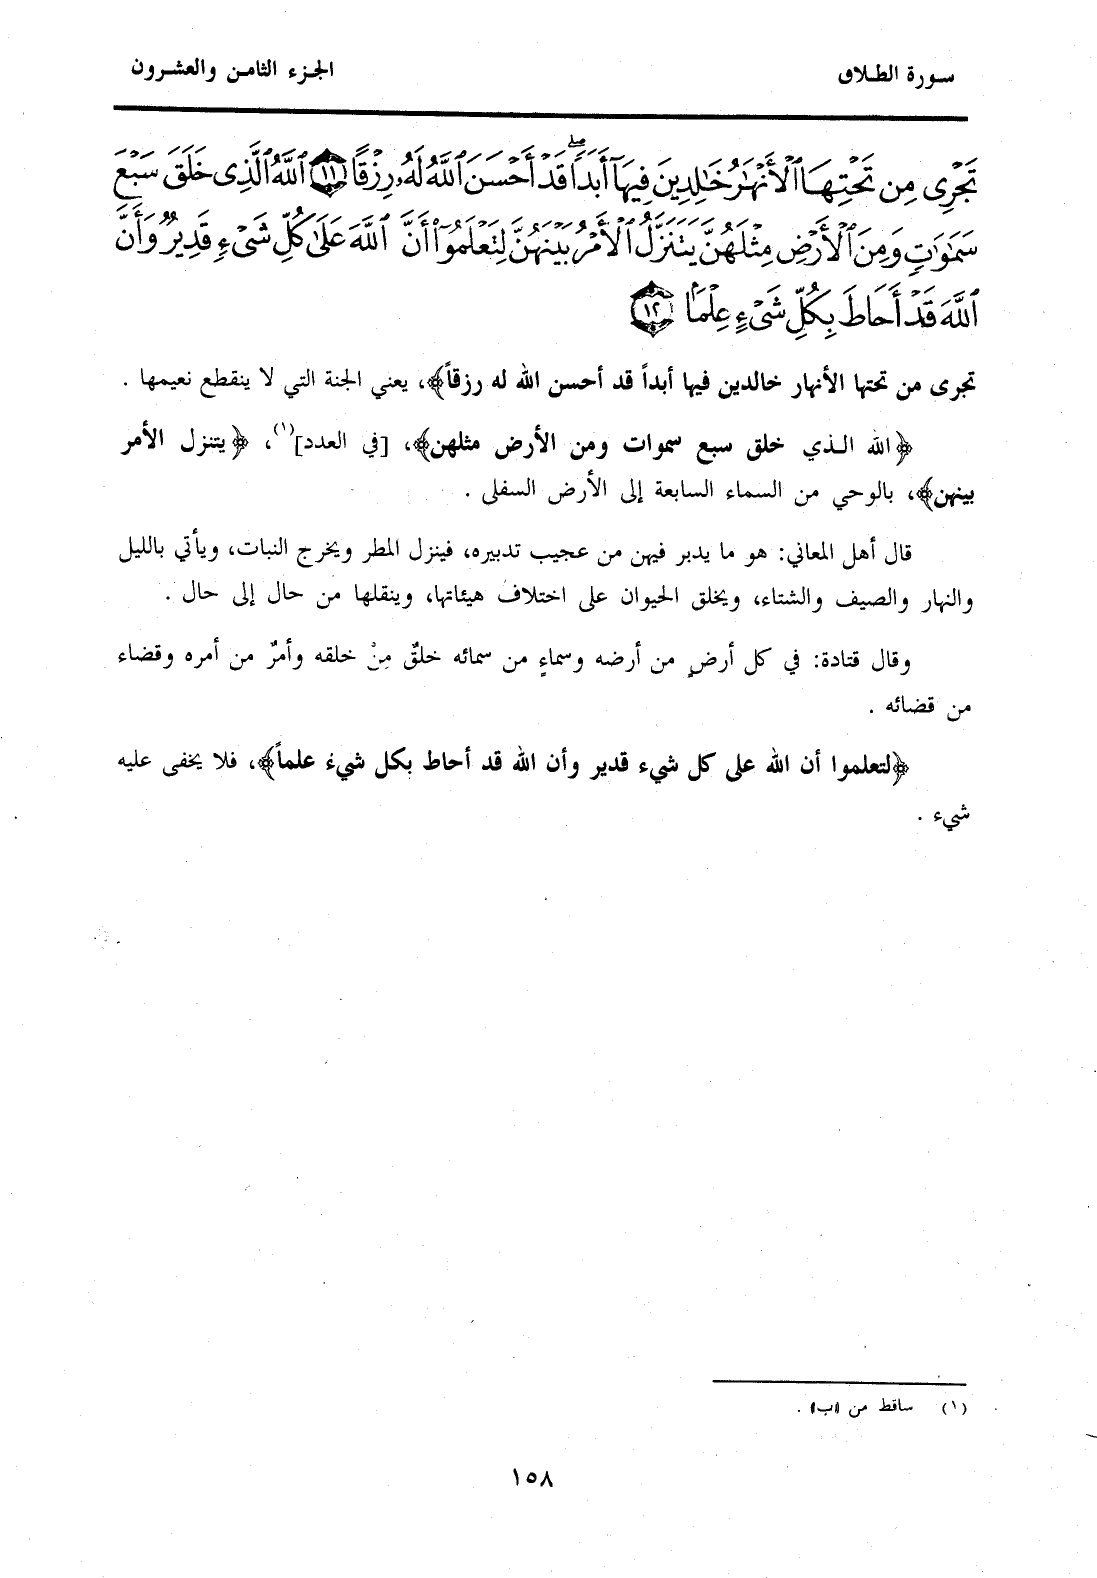 سورة الطلاق
الجزء الثامن والعشرون
تَجْرِى مِن تَحْتِهَا ٱلْأَنْهَٰرُ خَٰلِدِينَ فِيهَآ أَبَدًاۖ قَدْ أَحْسَنَ ٱللَّهُ لَهُۥ رِزْقًا ۝١١ ٱللَّهُ ٱلَّذِى خَلَقَ سَبْعَ
سَمَٰوَٰتٍ وَمِنَ ٱلْأَرْضِ مِثْلَهُنَّ يَتَنَزَّلُ ٱلْأَمْرُ بَيْنَهُنَّ لِتَعْلَمُوٓا۟ أَنَّ ٱللَّهَ عَلَىٰ كُلِّ شَىْءٍ قَدِيرٌ وَأَنَّ
ٱللَّهَ قَدْ أَحَاطَ بِكُلِّ شَىْءٍ عِلْمًۢا ۝١٢
تجرى من تحتها الأنهار خالدين فيها أبداً قد أحسن الله له رزقاً﴾، يعني الجنة التي لا ينقطع نعيمها .
﴿الله الـذي خلق سبع سموات ومن الأرض مثلهن﴾، [في العدد](١)، ﴿يتنزل الأمر
بينهن﴾، بالوحي من السماء السابعة إلى الأرض السفلى .
قال أهل المعاني: هو ما يدبر فيهن من عجيب تدبيره، فينزل المطر ويخرج النبات، ويأتي بالليل
والنهار والصيف والشتاء، ويخلق الحيوان على اختلاف هيئاتها، وينقلها من حال إلى حال .
وقال قتادة: في كل أرضٍ من أرضه وسماءٍ من سمائه خلقٌ مِنْ خلقه وأمرٌ من أمره وقضاء
من قضائه .
﴿لتعلموا أن الله على كل شيء قدير وأن الله قد أحاط بكل شيء علماً﴾، فلا يخفى عليه
شيء .
(١) ساقط من «ب» .
١٥٨